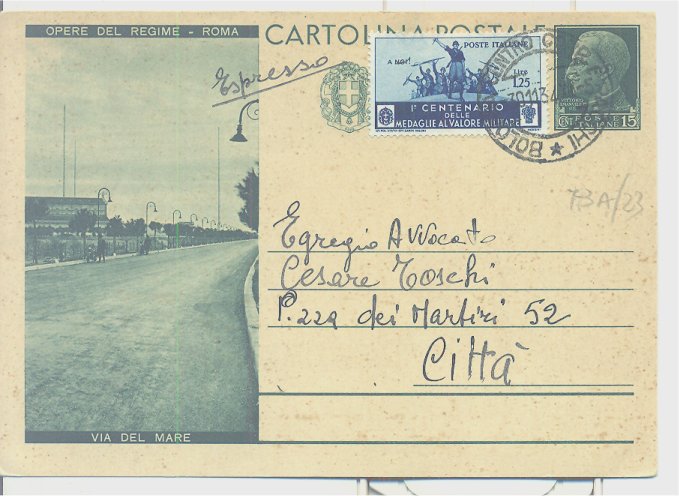 OPERE DEL REGIME - ROMA
CARTOLINA POSTALE
Espresso
POSTE ITALIANE
A NOI!
LIRE
1.25
I° CENTENARIO
DELLE
MEDAGLIE AL VALORE MILITARE
30.11.34
BOLO
VITTORIO
EMANUELE III
POSTE 15
ITALIANE
73A/23
Egregio Avvocato
Cesare Toschi
P.zza dei Martiri 52
Città
VIA DEL MARE